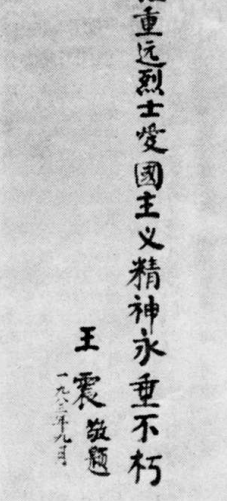 重远烈士爱國主义精神永垂不朽
王震敬题
一九八三年九月